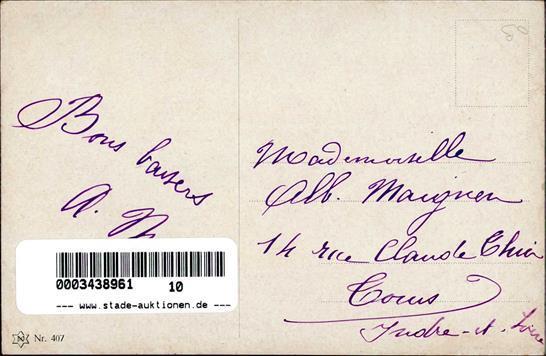 Bons baisers
A.
0003438961 10
--- www.stade-auktionen.de ---
Nr. 407
50
Mademoiselle
Alb. Maignen
14 rue Claude
Tours
Indre-et-Loire